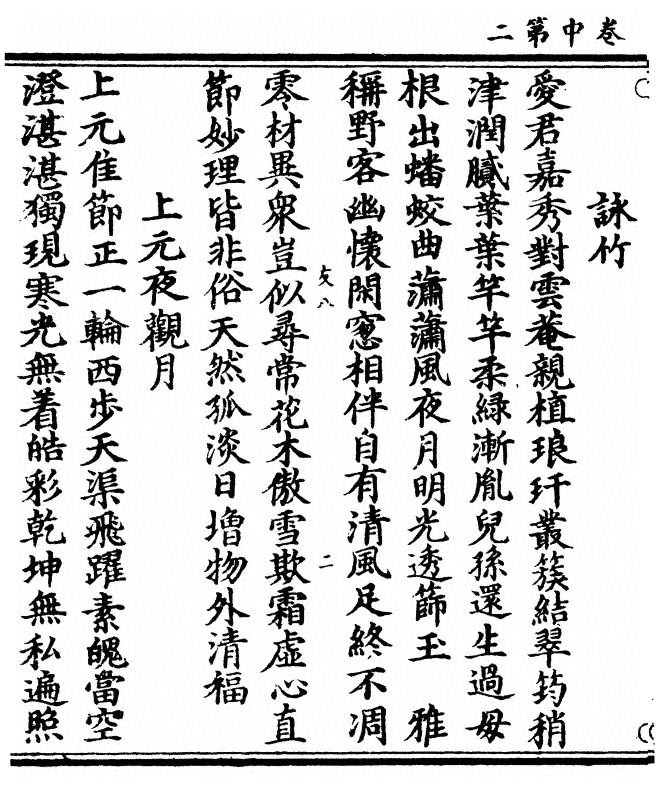 卷中第二
詠竹
愛君嘉秀對雲菴親植琅玕叢簇結翠筠稍
津潤膩葉葉竿竿柔綠漸胤兒孫還生過母
根出蟠蛟曲瀟瀟風夜月明光透篩玉　雅
稱野客幽懷閑窻相伴自有清風足終不凋
攴八
二
零材異衆豈似尋常花木傲雪欺霜虛心直
節妙理皆非俗天然孤淡日增物外清福
上元夜觀月
上元佳節正一輪西步天渠飛躍素魄當空
澄湛湛獨現寒光無着皓彩乾坤無私遍照